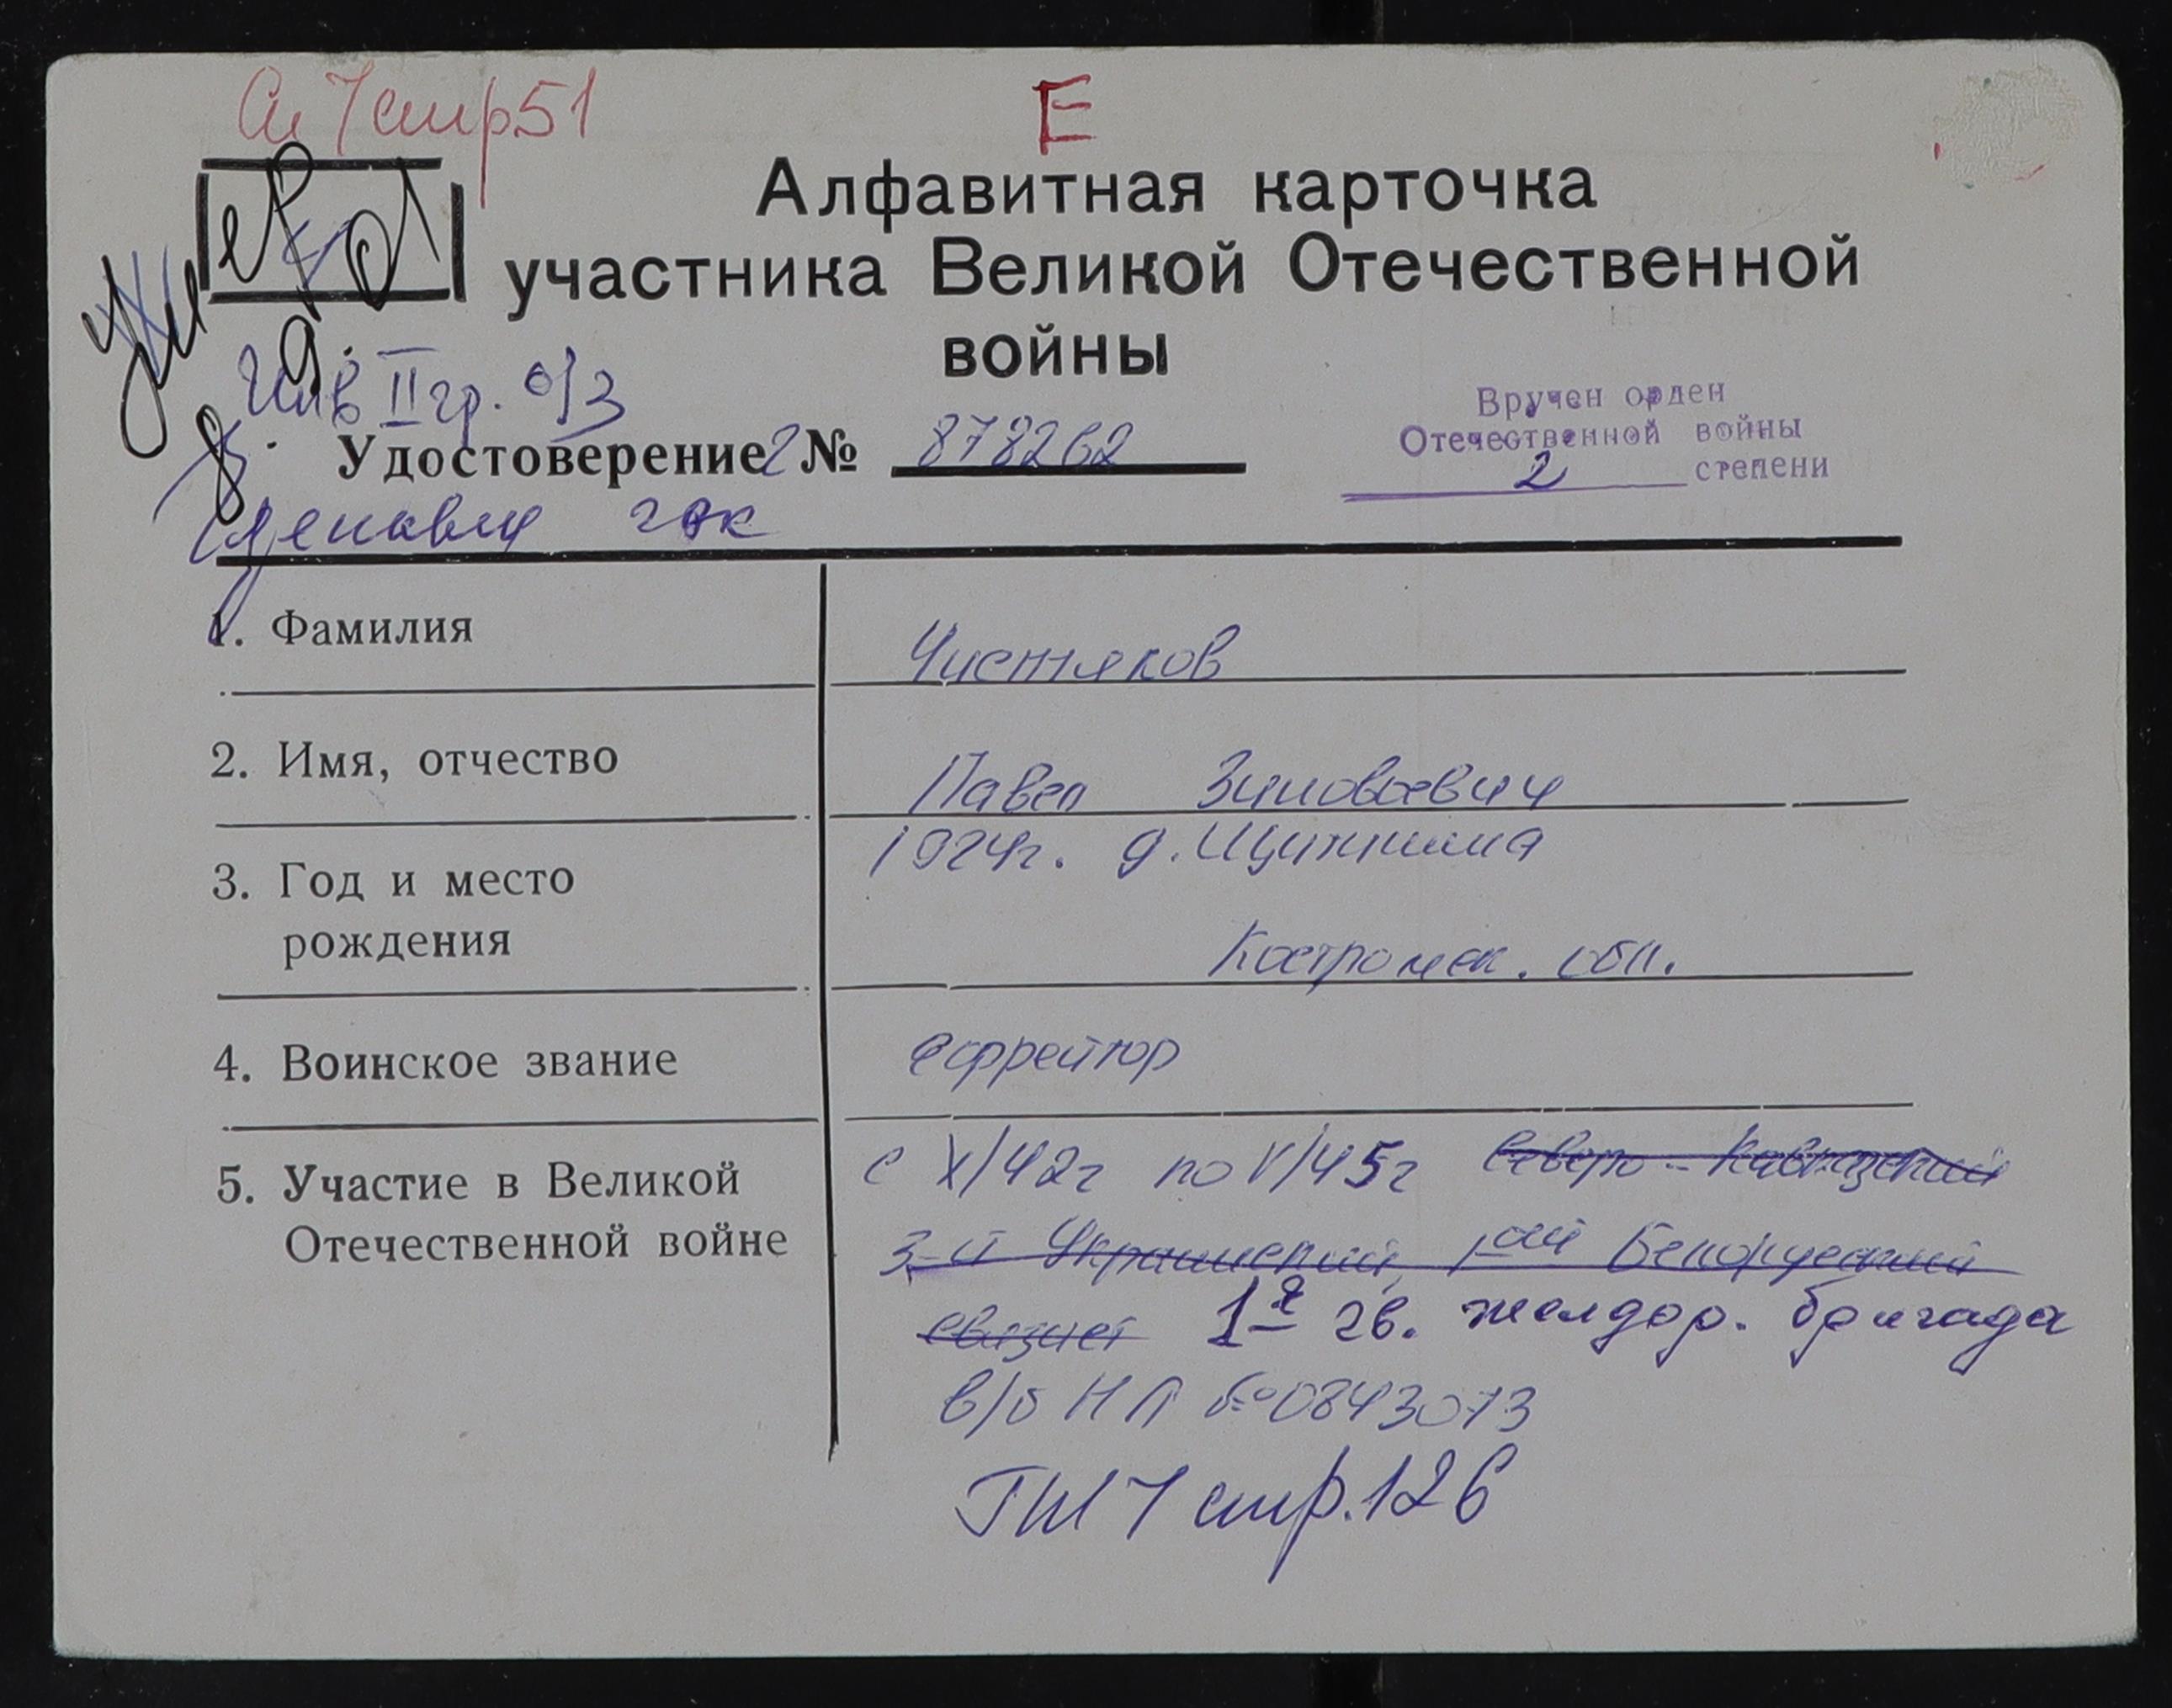 стр 51
Е
Алфавитная карточка
участника Великой Отечественной
войны
Инв II гр. о/з
Вручен орден
Отечественной войны
2 степени
Удостоверение 2 № 878262
1. Фамилия Чистяков
2. Имя, отчество Павел Зиновьевич
3. Год и место 1924г. д.
рождения Костромск. обл.
4. Воинское звание ефрейтор
5. Участие в Великой с X/42г по V/45г Северо-Кавказский
Отечественной войне 3-й Украинский, 1-ый Белорусский
связист 1я гв. желдор. бригада
в/б НЛ №0843073
ГШ 7 стр. 126